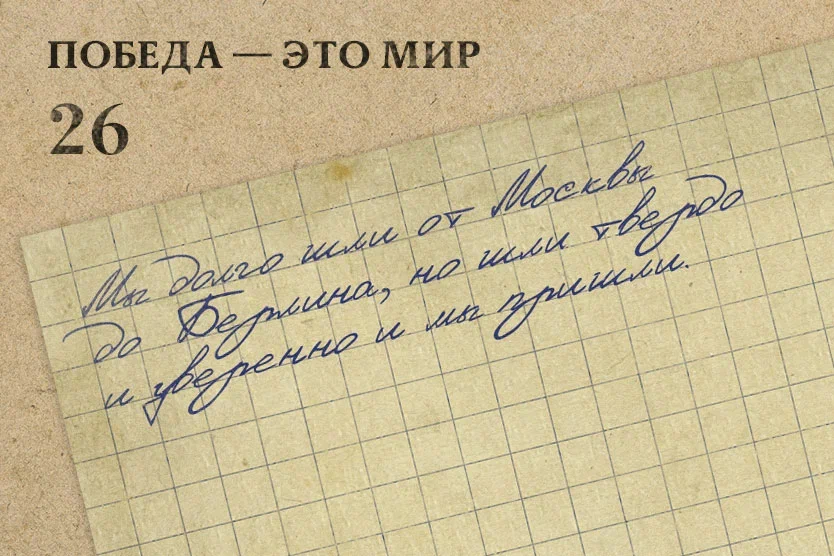 ПОБЕДА — ЭТО МИР
26
Мы долго шли от Москвы
до Берлина, но шли твердо
и уверенно и мы пришли.